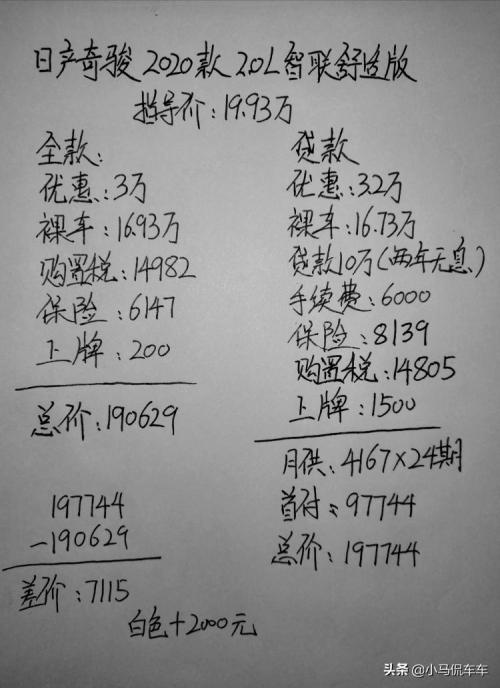 日产奇骏2020款2.0L智联舒适版
指导价:19.93万
全款:
优惠:3万
裸车:16.93万
购置税:14982
保险:6147
上牌:200
总价:190629
贷款
优惠:3.2万
裸车:16.73万
贷款10万(两年无息)
手续费:6000
保险:8139
购置税:14805
上牌:1500
月供:4167×24期
首付:97744
总价:197744
197744
-190629
差价:7115
白色+2000元
头条 @小马侃车车